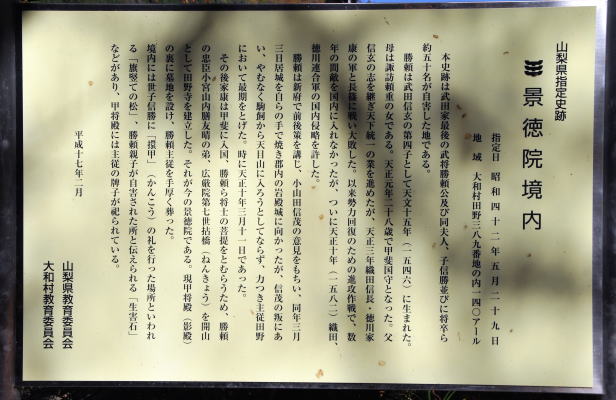 山梨県指定史跡
景徳院境内
指定日 昭和四十二年五月二十九日
地域 大和村田野三八九番地の内一四〇アール
本史跡は武田家最後の武将勝頼公及び同夫人、子信勝並びに将卒ら
約五十名が自害した地である。
勝頼は武田信玄の第四子として天文十五年(一五四六)に生まれた。
母は諏訪頼重の女である。天正元年二十八歳で甲斐国守となった。父
信玄の志を継ぎ天下統一の業を進めたが、天正三年織田信長・徳川家
康の軍と長篠に戦い大敗した。以来勢力回復のための進攻作戦で、数
年の間敵を国内に入れなかったが、ついに天正十年(一五八二)織田、
徳川連合軍の国内侵略を許した。
勝頼は新府で前後策を講じ、小山田信茂の意見をもちい、同年三月
三日居城を自らの手で焼き郡内の岩殿城に向かったが、信茂の叛にあ
い、やむなく駒飼から天目山に入ろうとしてならず、力つき主従田野
において最期をとげた。時に天正十年三月十一日であった。
その後家康は甲斐に入国、勝頼ら将士の菩提をとむらうため、勝頼
の忠臣小宮山内膳友晴の弟、広厳院第七世拈橋(ねんきょう)を開山
として田野寺を建立した。それが今の景徳院である。現甲将殿(影殿)
の裏に墓地を設け、勝頼主従を手厚く葬った。
境内には世子信勝に「擐甲」(かんこう)の礼を行った場所といわれ
る「旗竪ての松」、勝頼親子が自害された所と伝えられる「生害石」
などがあり、甲将殿には主従の牌子が祀られている。
平成十七年二月
山梨県教育委員会
大和村教育委員会